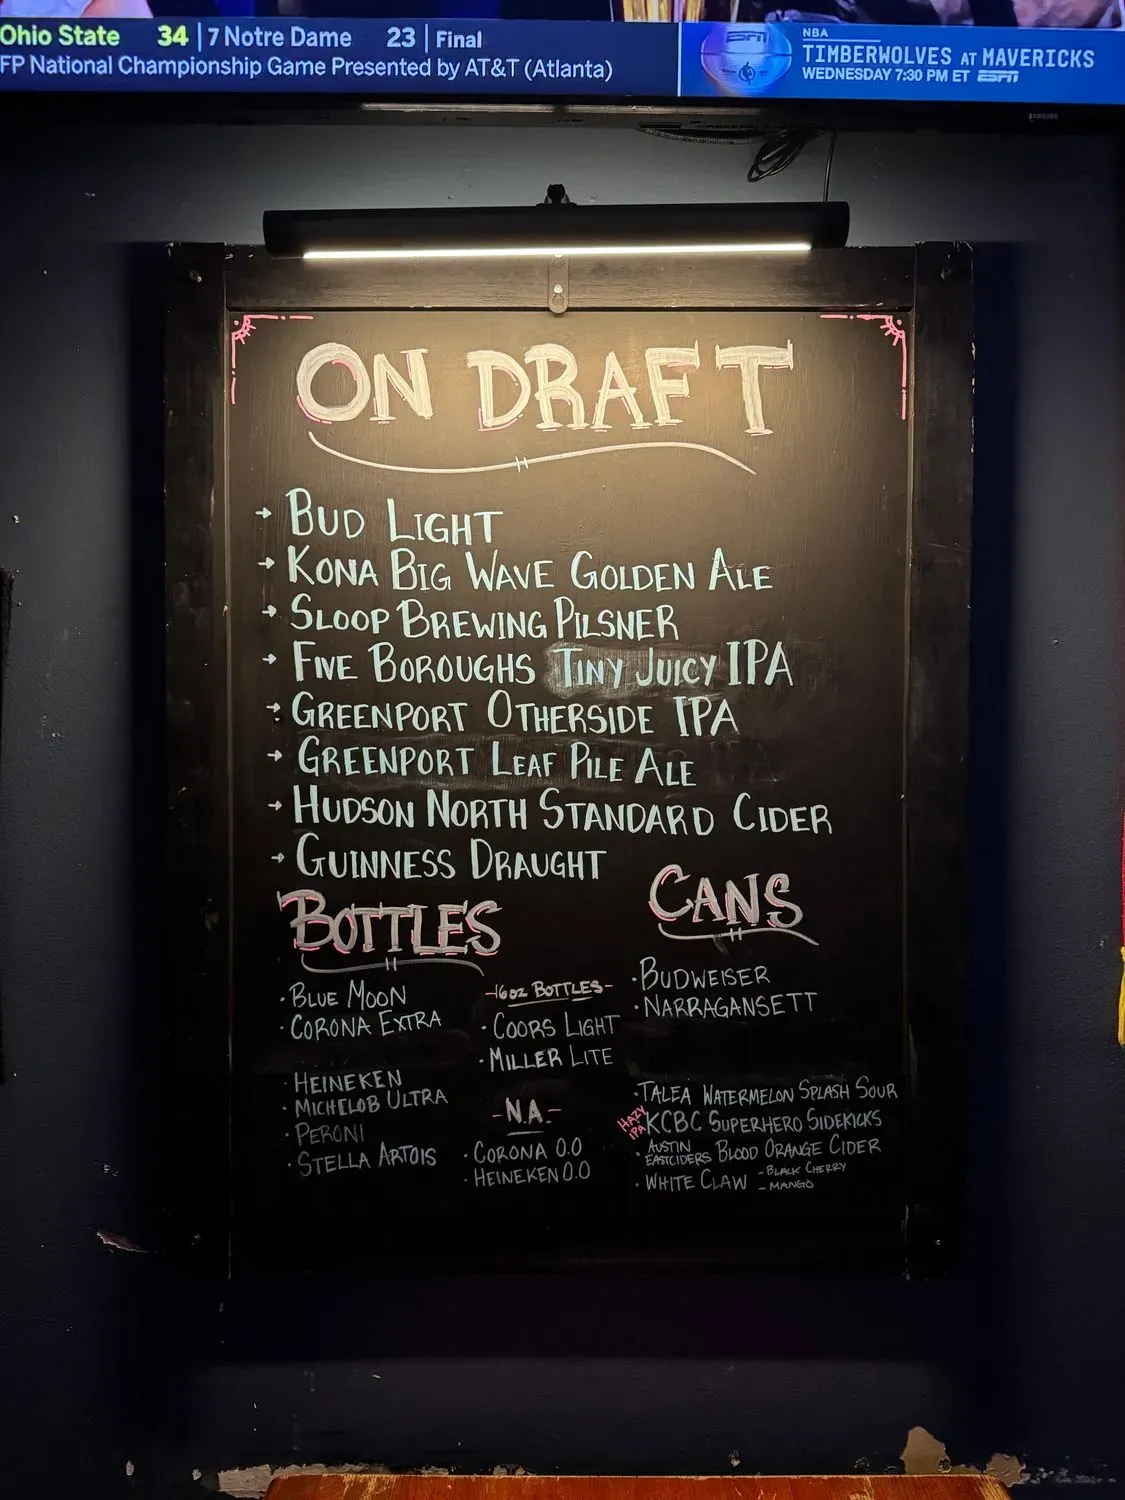 Ohio State 34 | 7 Notre Dame 23 | Final
FP National Championship Game Presented by AT&T (Atlanta)
ESPN
NBA
TIMBERWOLVES AT MAVERICKS
WEDNESDAY 7:30 PM ET ESPN
SAMSUNG
ON DRAFT
→ BUD LIGHT
→ KONA BIG WAVE GOLDEN ALE
→ SLOOP BREWING PILSNER
→ FIVE BOROUGHS TINY JUICY IPA
→ GREENPORT OTHERSIDE IPA
→ GREENPORT LEAF PILE ALE
→ HUDSON NORTH STANDARD CIDER
→ GUINNESS DRAUGHT
BOTTLES
· BLUE MOON
· CORONA EXTRA
· HEINEKEN
· MICHELOB ULTRA
· PERONI
· STELLA ARTOIS
-16oz BOTTLES-
· COORS LIGHT
· MILLER LITE
- N.A. -
· CORONA 0.0
· HEINEKEN 0.0
CANS
· BUDWEISER
· NARRAGANSETT
· TALEA WATERMELON SPLASH SOUR
HAZY IPA KCBC SUPERHERO SIDEKICKS
· AUSTIN EASTCIDERS BLOOD ORANGE CIDER
· WHITE CLAW - BLACK CHERRY
- MANGO